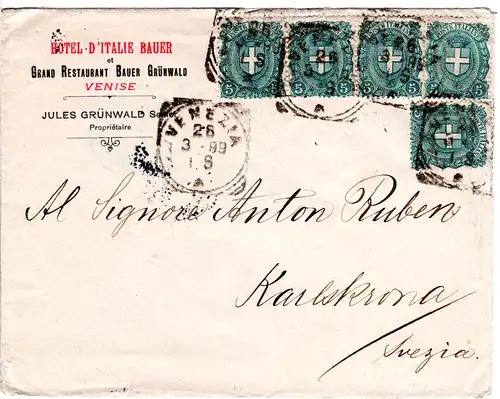 HOTEL D'ITALIE BAUER
et
GRAND RESTAURANT BAUER GRÜNWALD
VENISE
JULES GRÜNWALD
Propriétaire
VENEZIA
26
3-99
8 S
POSTE ITALIANE
5 5 5 5 5
Al Signore Anton Ruben
Karlskrona
Svezia.